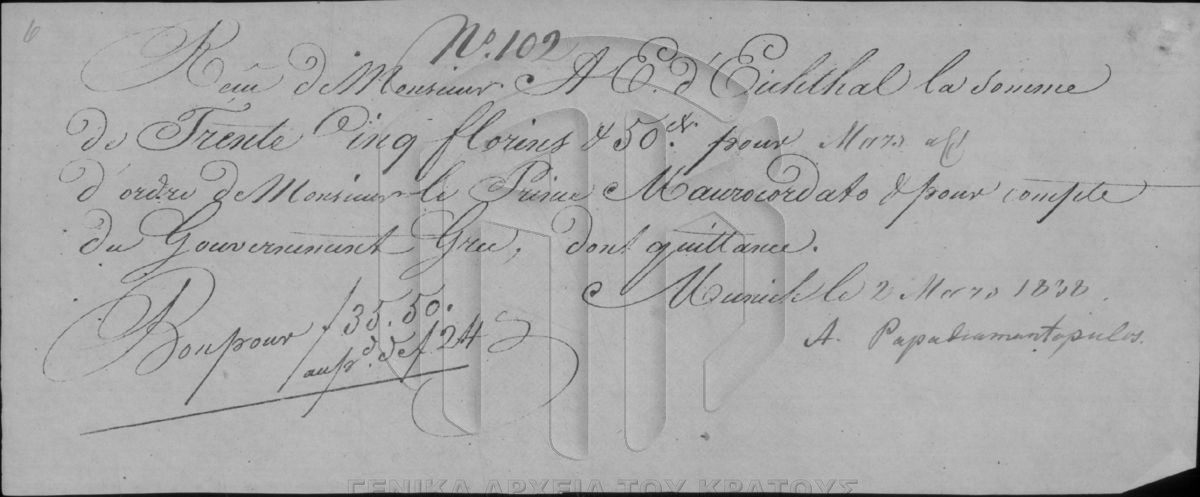 6
No. 102
Reçu de Monsieur A E. d'Eichthal la somme
de Trente Cinq florins & 50 xr. pour Mars
d'ordre de Monsieur le Prince Maurocordato & pour compte
du Gouvernement Grec, dont quittance.
Munich le 2 Mars 1838.
Bon pour f 35.50.
au pd. de f 24
A. Papadiamantopulos.
ΓΕΝΙΚΑ ΑΡΧΕΙΑ ΤΟΥ ΚΡΑΤΟΥΣ